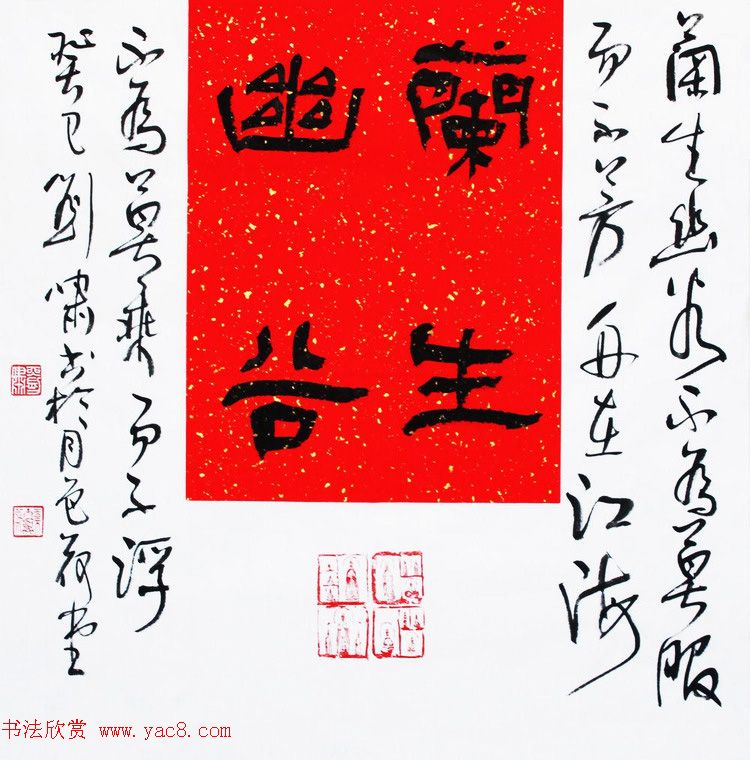 蘭生幽谷不為莫服
而不芳舟在江海
蘭生
幽谷
不為莫乘而不浮
癸巳劉嘯书於月色荷堂
书法欣赏 www.yac8.com